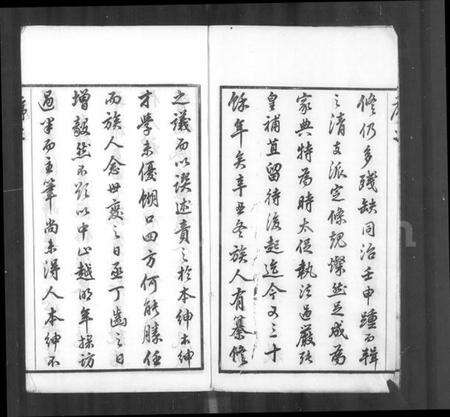 修仍多殘缺同治壬申踵而輯
之清支派定條規燦然足成為
家典特為時太促執法過嚴張
皇補苴留待後起迄今又三十
餘年矣辛丑冬族人有纂修
之議而以譔述責之於本紳本紳
才學未優餬口四方何能勝任
而族人念世變之日亟丁齒之日
增毅然不疑以中止越明年採訪
過半而主筆尚未得人本紳不